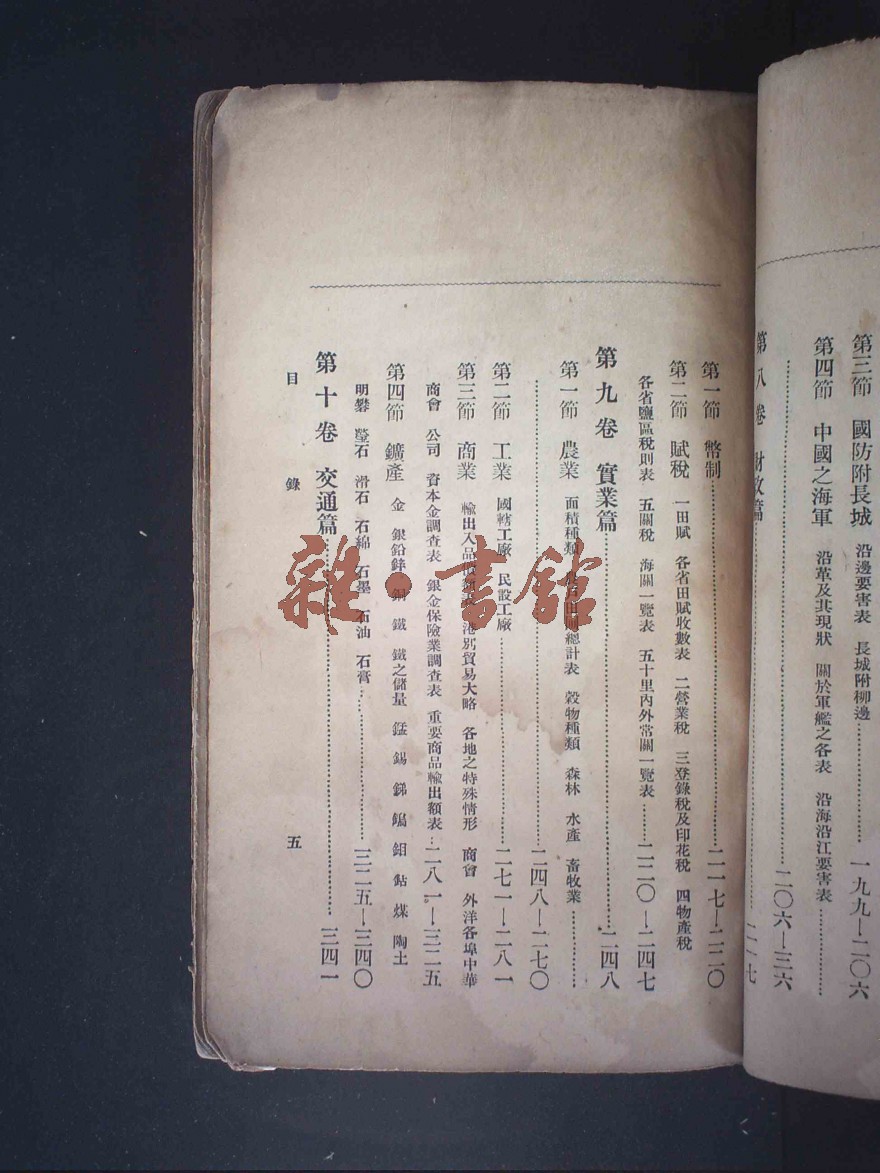 第三節 國防附長城 沿邊要害表 長城附柳邊……一九九—二〇六
第四節 中國之海軍 沿革及其現狀 關於軍艦之各表 沿海沿江要害表……
……二〇六—三六
第八卷 財政篇……二一七
第一節 幣制……二一七—二二〇
第二節 賦稅 一田賦 各省田賦收數表 二營業稅 三登錄稅及印花稅 四物產稅
各省鹽區稅則表 五關稅 海關一覽表 五十里內外常關一覽表……二二〇—二四七
第九卷 實業篇……二四八
第一節 農業 面積種類 總計表 穀物種類 森林 水產 畜牧業……
……二四八—二七〇
第二節 工業 國轄工廠 民設工廠……二七一—二八一
第三節 商業 輸出入品 港別貿易大略 各地之特殊情形 商會 外洋各埠中華
商會 公司 資本金調查表 銀金保險業調查表 重要商品輸出額表……二八一—三二五
第四節 鑛產 金 銀鉛鋅 銅 鐵 鐵之儲量 錳 錫 銻 鎢 鉬 鈷 煤 陶土
明礬 螢石 滑石 石綿 石墨 石油 石膏……三二五—三四〇
第十卷 交通篇……三四一
目錄 五
雜·書館